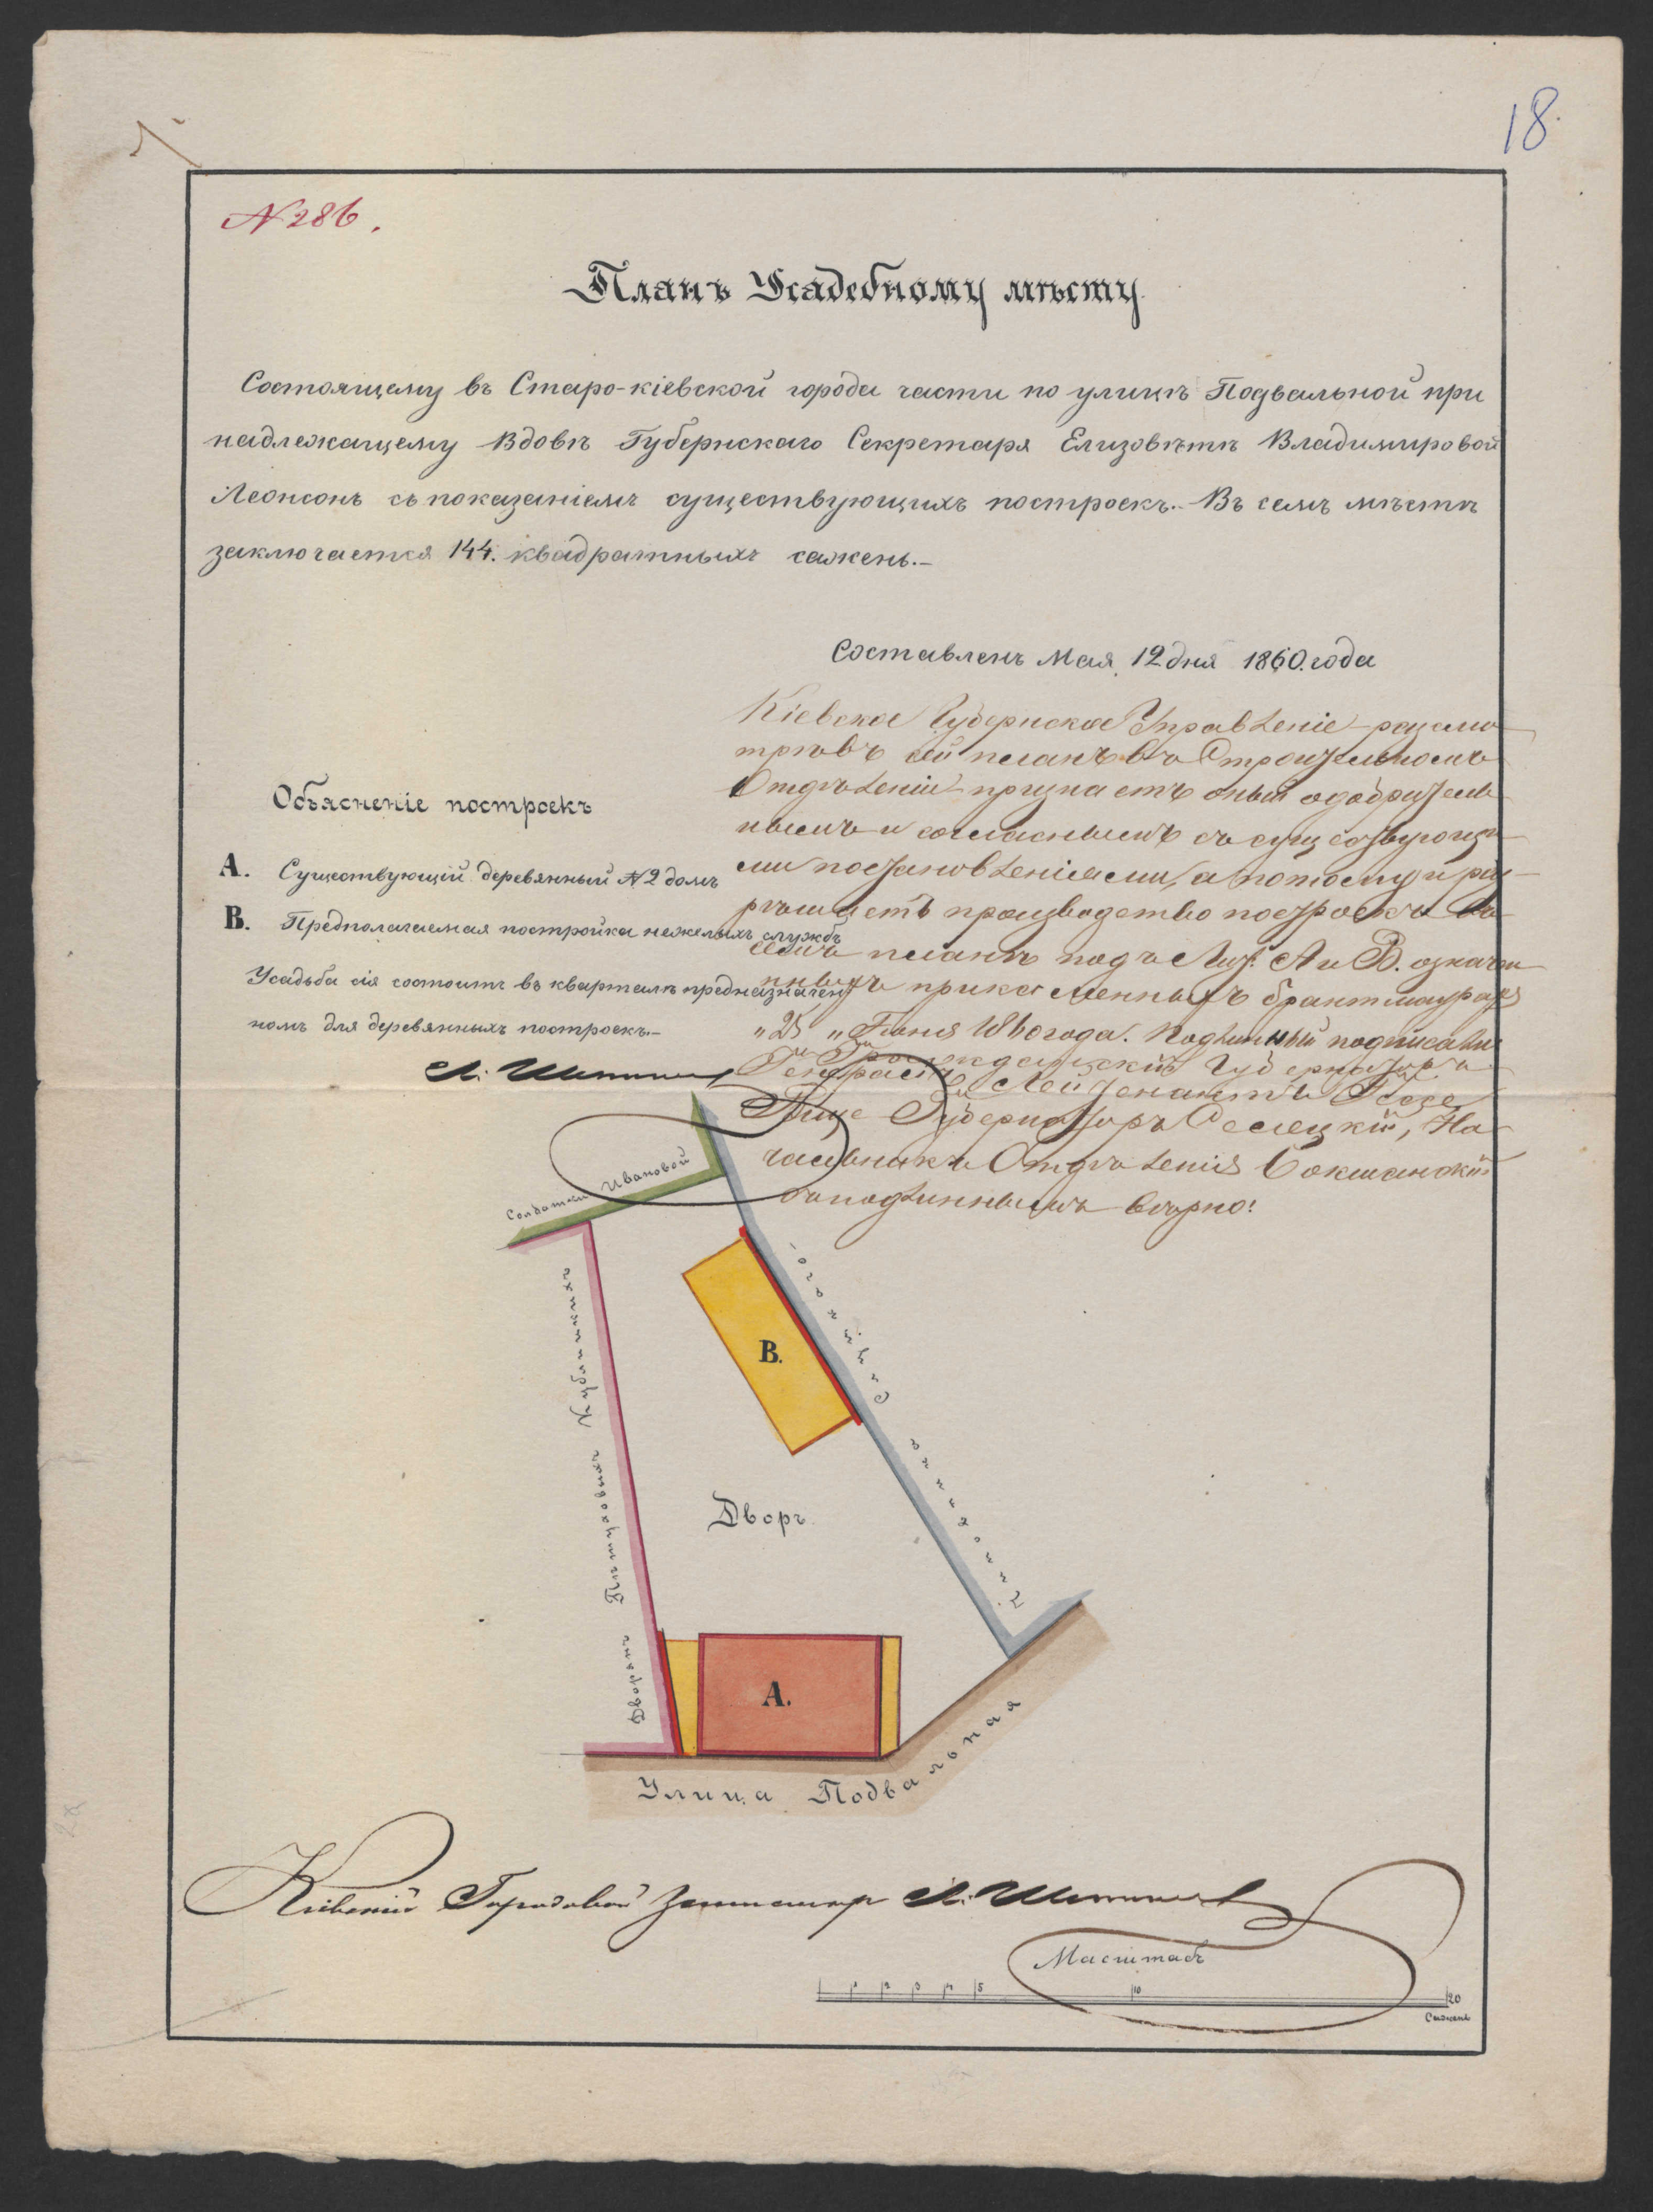 18.
N 286.
Планъ Усадебному мѣсту
Состоящему въ Старо-кіевской города части по улицѣ Подвальной при
надлежащему Вдовѣ Губернскаго Секретаря Елизовѣтѣ Владимировой
Леонсонъ съ показаніемъ существующихъ построекъ.- Въ семъ мѣстѣ
заключается 144. квадратныхъ сажень.-
Составленъ Мая 12 дня 1860. года
Кіевское Губернское Управленіе разсмо
трѣвъ сей планъ въ Строительномъ
Отдѣленіи признаетъ оный одобритель
нымъ и согласнымъ съ существующи
ми постановленіями, а потому и раз-
рѣшаетъ производство построекъ на
семъ планѣ подъ Лит. А и В. означен
ныхъ при каменныхъ брантмаурахъ
"25" Іюня 1860 года. Подлинный подписали:
Гнъ Гражданскій Губернаторъ
Генералъ Лейтенантъ Гессе
Вице Губернаторъ Селецкій, На
чальникъ Отдѣленія
съ подлиннымъ вѣрно:
Объясненіе построекъ
А. Существующій деревянный N 2 домъ
В. Предполагаемая постройка нежелыхъ службъ
Усадьба сія состоитъ въ кварталѣ предназначен
номъ для деревянныхъ построекъ.-
Солдатки Ивановой
Дворянъ Піотровыхъ Кублицкихъ
В.
Дворъ
А.
Улица Подвальная
Кіевскій Городовой Землемѣр
Масштабъ
1 2 3 4 5 10 20
Сажень